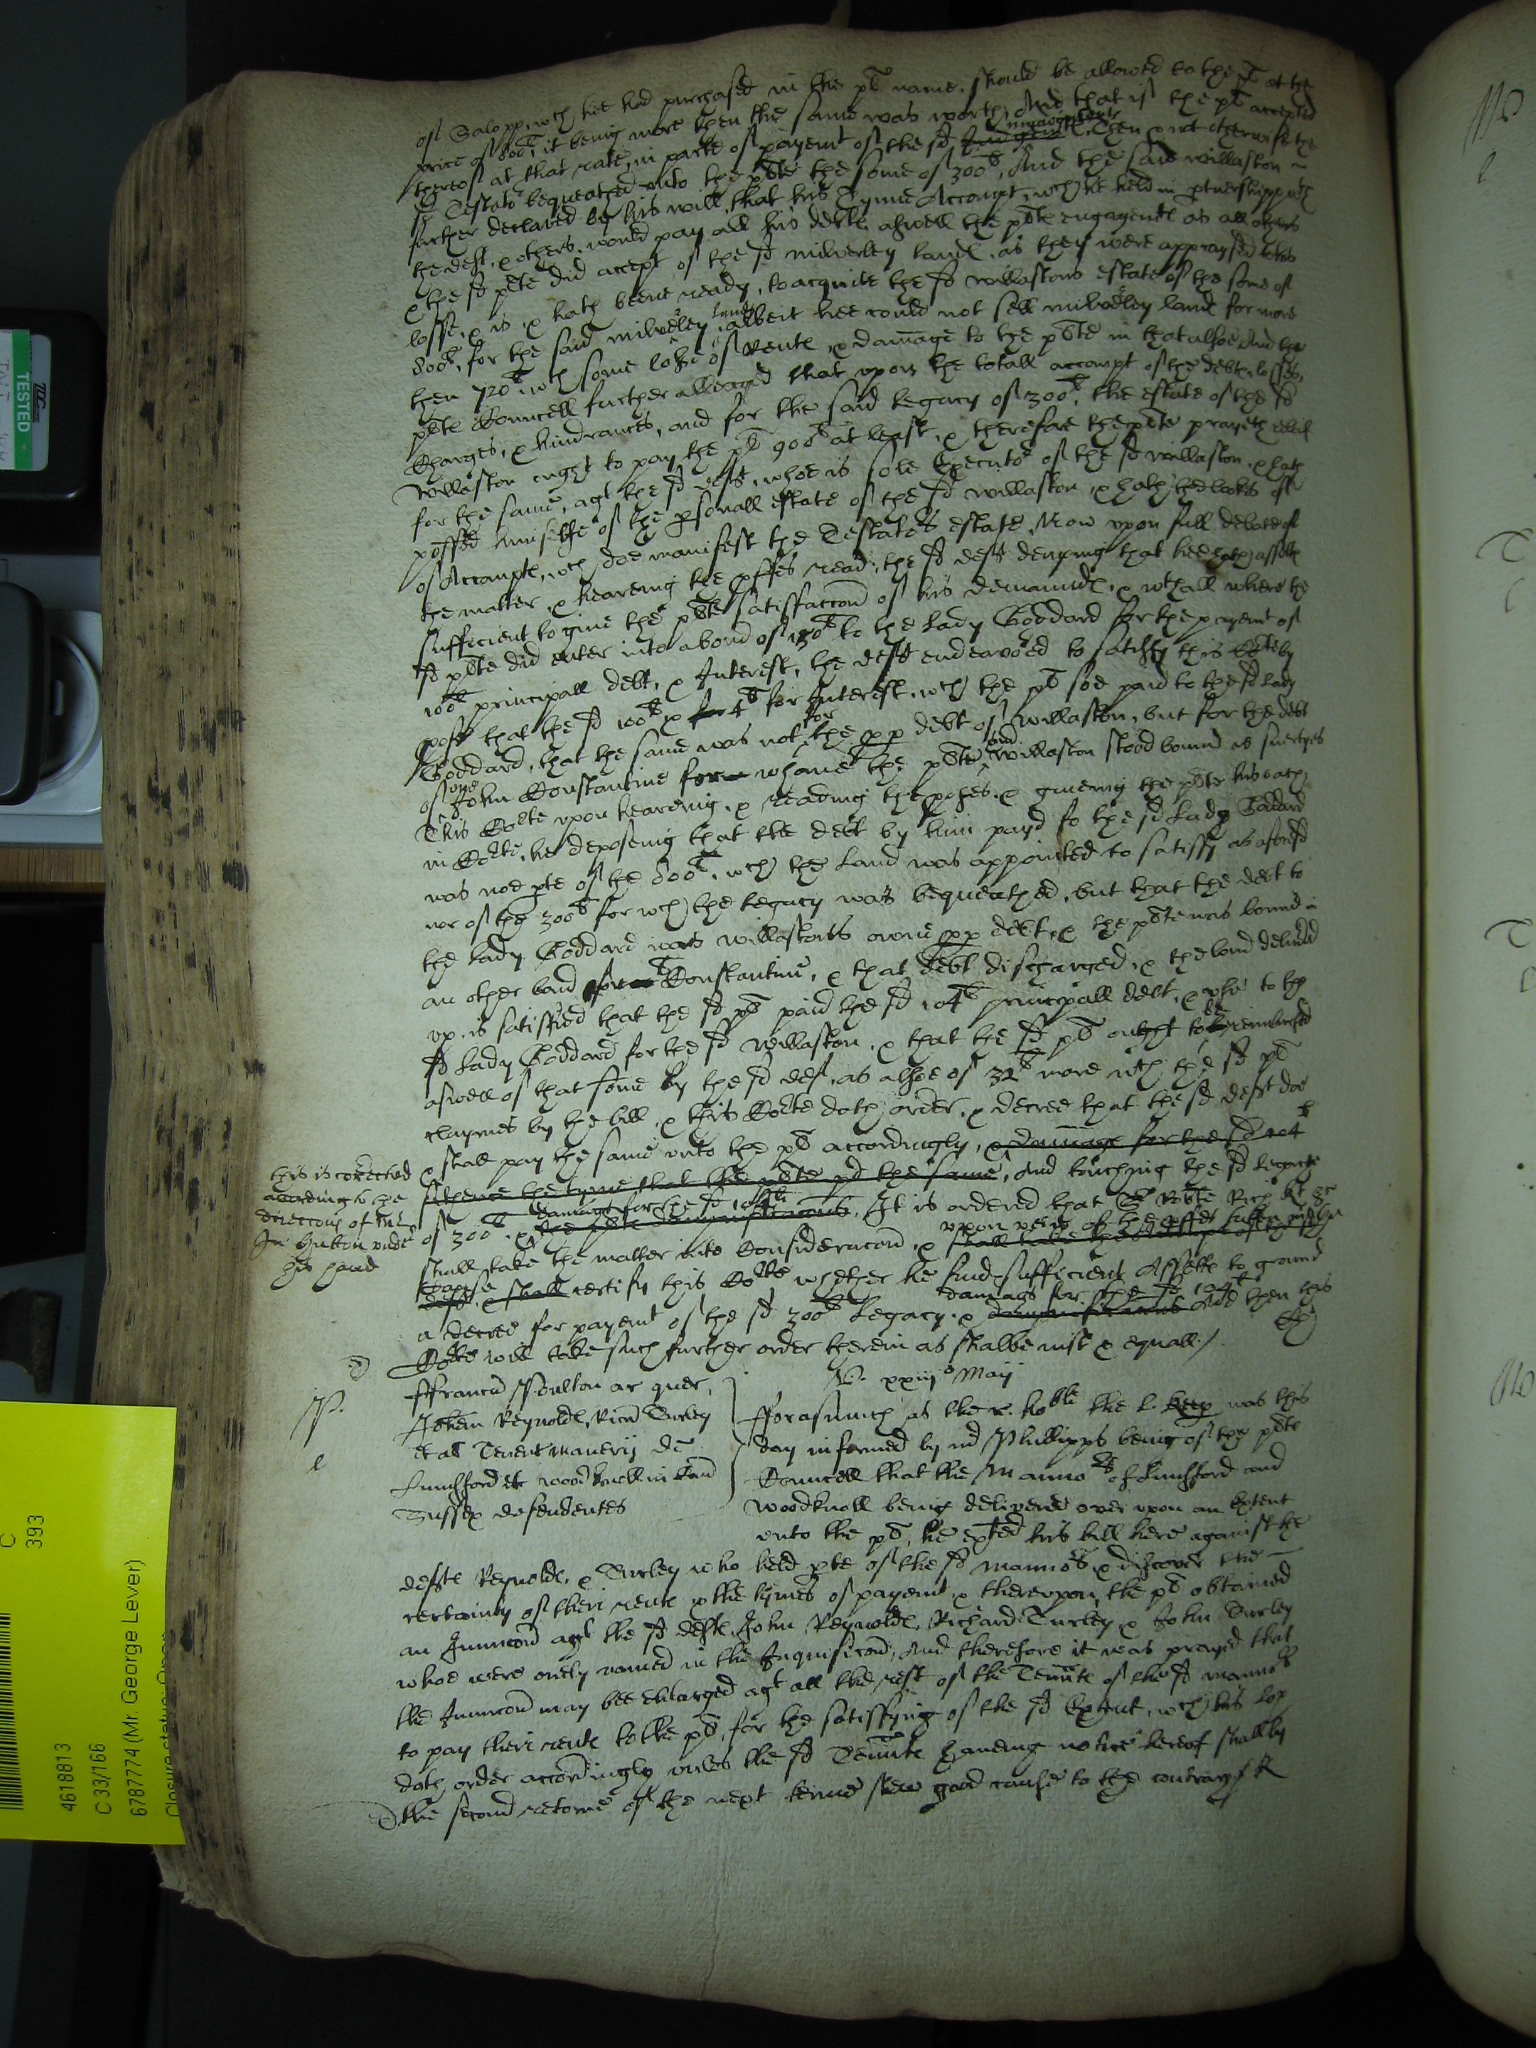 of Salopp, wch hee had purchased in the plt name, should be allowed to the plt at the
price of 800li it being more then the same was worth, And that if the plt accepted
thereof at that rate, in parte of payemt of the sd ingagemts, then & not otherwise the
sd Testator bequeathed unto the plte the some of 300li, And the said Willaston
further declared by his will, that his Tynne Accompt, wch he held in ptnershipp wth
the deft, & others, would pay all his debts aswell the plte engagemts as all others
& the sd plte did accept of the sd Milverley lands, as they were appraysed wth
losse, & is & hath beene ready, to acquite the sd Willastons estate of the some of
800li, for the said Milverley lands, albeit hee could not sell Milverley land for more
then 720li wth some losse of Rente, & damage to the plte in that alsoe And the
plte Councell further alleaged that upon the totall accompt of the debts, losses,
Charges, & hindrances, and for the said Legacy of 300li, the estate of the sd
Willaston ought to pay the plt 900li at least, & therefore the plte prayeth releif
for the same, agt the sd deft, whoe is sole Executor of the sd Willaston, & hath
possed himselfe of the psonall estate of the sd Willaston, & hath the bookes of
of Accompte, wch doe manifest the Testators estate. Now upon full debate of
the matter, & heareing the proffes read, the sd deft denying that hee hath assette
sufficient to give the plte satisfaccon of his demaunds, & wthall where the
sd plte did enter into a bond of to the Lady Goddard for the payemt of
100li principall debt, & Interest, the deft endeavored to satisfy this Corte by
profe that the sd 100li & 4li for Interest, wch the plt soe paid to the sd Lady
Goddard, that the same was not for the pp debt of Willaston, but for the debt
of one John Constantine for whome the plte and Willaston stood bound as suertyes
This Corte upon heareing, & reading the profes, & giveing the plte his oath
in Corte, he deposeing that the debt by him payd to the sd Lady Goddard
was noe pte of the 800li, wch the Land was appointed to satisfy as aforesd
nor of the 300li for wch the Legacy was bequeathed, but that the debt to
the Lady Goddard was Willastons owne pp debt, & the plte was bound in
an other bond for Constantine, & that debt discharged, & the bond delivered
up, is satisfied that the sd plt paid the sd 104li principall debt, & use to the
sd Lady Goddard for the sd Willaston, & that the sd plt ought to be reimbursed
aswell of that some by the sd deft, as alsoe of 32li more wch the sd plt
claymes by the bill, & this Corte doth order, & decree that the sd deft doe
& shall pay the same unto the plt accordingly, & damage for the sd 104li
sithence the tyme that the plte pd the same, And touching the sd Legacie
of 300li, & damage for the sd 104li It is ordered that Sr
shall take the matter into Consideracon, & upon veiw of
& shall certify this Corte whether he finds sufficient Assette to ground
a decree for payemt of the sd 300li Legacy, & damage for the sd 104li And then this
Corte will take such further order therein as shalbe iust & equall/.
this is corrected
according to the
direccon of Mr
Hutton under
his hand
V. xxiijo Maij
ffrancis Poulton ar quer,
Reynolds, Ricus Turley
et al Tenent Manerij de
Lunchford et woodknoll in Com
Sussex defendentes
fforasmuch as the r. hoble the L. keep was this
day informed by mr Phillipps being of the plte
Councell that the Mannors of Lunchford and
woodknoll being delivered over upon an Extent
unto the plt, he exhted his bill here against the
defte Reynolds, & Turley who held pte of the sd Mannors & discover the
certainty of their rente & the tymes of payemt & thereupon the plt obtained
an Iniuncon agt the sd defte, John Reynolds, Richard Turley & John Turley
whoe were onely named in the Inquisicon, And therefore it was prayed that
the Iniuncon may bee enlarged agt all the rest of the Tennte of the sd mannors
to pay their rente to the plt, for the satisfying of the sd Extent, wch his Lop
doth order accordingly unles the sd Tennte haveing notice hereof shall by
the second retorne of the next terme shew good cause to the contrary/ R
TESTED
C
393
4618813
C 33/166
6787774 (Mr. George Lever)
Closure status: Open